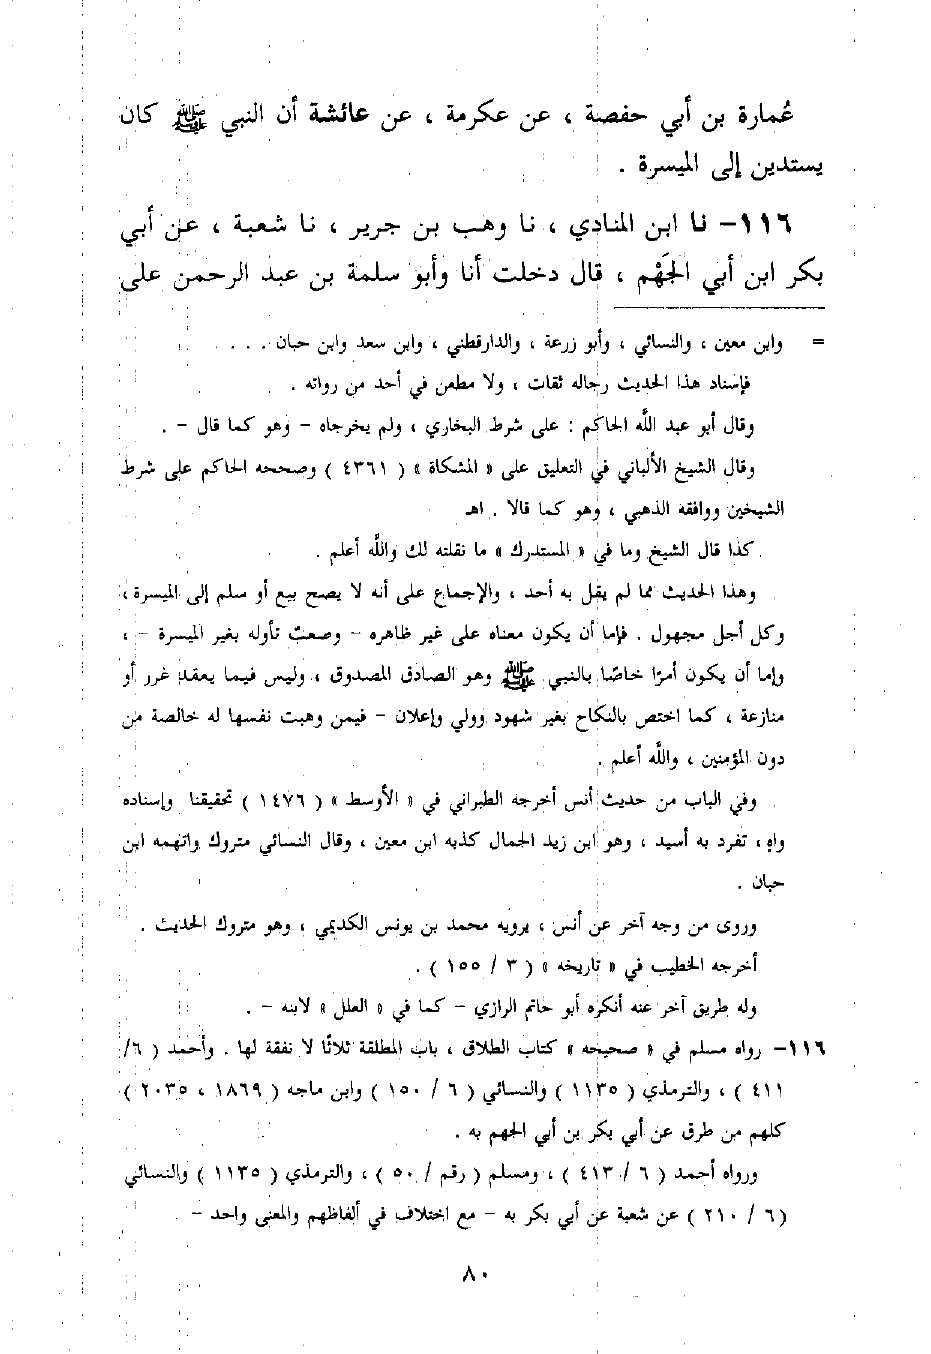 عُمارة بن أبي حفصة ، عن عكرمة ، عن عائشة أن النبي ﷺ كان
يستدين إلى الميسرة .
١١٦- نا ابن المنادي ، نا وهب بن جرير ، نا شعبة ، عن أبي
بكر ابن أبي الجَهْم ، قال دخلت أنا وأبو سلمة بن عبد الرحمن على
= وابن معين ، والنسائي ، وأبو زرعة ، والدارقطني ، وابن سعد وابن حبان . . . .
فإسناد هذا الحديث رجاله ثقات ، ولا مطعن في أحد من رواته .
وقال أبو عبد اللَّه الحاكم : على شرط البخاري ، ولم يخرجاه - وهو كما قال - .
وقال الشيخ الألباني في التعليق على « المشكاة » ( ٤٣٦١ ) وصححه الحاكم على شرط
الشيخين ووافقه الذهبي ، وهو كما قالا . اهـ
كذا قال الشيخ وما في « المستدرك » ما نقلته لك واللَّه أعلم .
وهذا الحديث مما لم يقل به أحد ، والإجماع على أنه لا يصح بيع أو سلم إلى الميسرة ،
وكل أجل مجهول . فإما أن يكون معناه على غير ظاهره - وصعبٌ تأوله بغير الميسرة - ،
وإما أن يكون أمرًا خاصًا بالنبي ﷺ وهو الصادق المصدوق ، وليس فيما يعقد غرر أو
منازعة ، كما اختص بالنكاح بغير شهود وولي وإعلان - فيمن وهبت نفسها له خالصة من
دون المؤمنين ، واللَّه أعلم .
وفي الباب من حديث أنس أخرجه الطبراني في « الأوسط » ( ١٤٧٦ ) تحقيقنا وإسناده
واهٍ ، تفرد به أسيد ، وهو ابن زيد الجمال كذبه ابن معين ، وقال النسائي متروك واتهمه ابن
حبان .
وروى من وجه آخر عن أنس ، يرويه محمد بن يونس الكديمي ، وهو متروك الحديث .
أخرجه الخطيب في « تاريخه » ( ٣ / ١٥٥ ) .
وله طريق آخر عنه أنكره أبو حاتم الرازي - كما في « العلل » لابنه - .
١١٦- رواه مسلم في « صحيحه » كتاب الطلاق ، باب المطلقة ثلاثًا لا نفقة لها . وأحمد ( ٦/
٤١١ ) ، والترمذي ( ١١٣٥ ) والنسائي ( ٦ / ١٥٠ ) وابن ماجه ( ١٨٦٩ ، ٢٠٣٥ )
كلهم من طرق عن أبي بكر بن أبي الجهم به .
ورواه أحمد ( ٦ / ٤١٣ ) ، ومسلم ( رقم / ٥٠ ) ، والترمذي ( ١١٣٥ ) والنسائي
( ٦ / ٢١٠ ) عن شعبة عن أبي بكر به - مع اختلاف في ألفاظهم والمعنى واحد -
٨٠